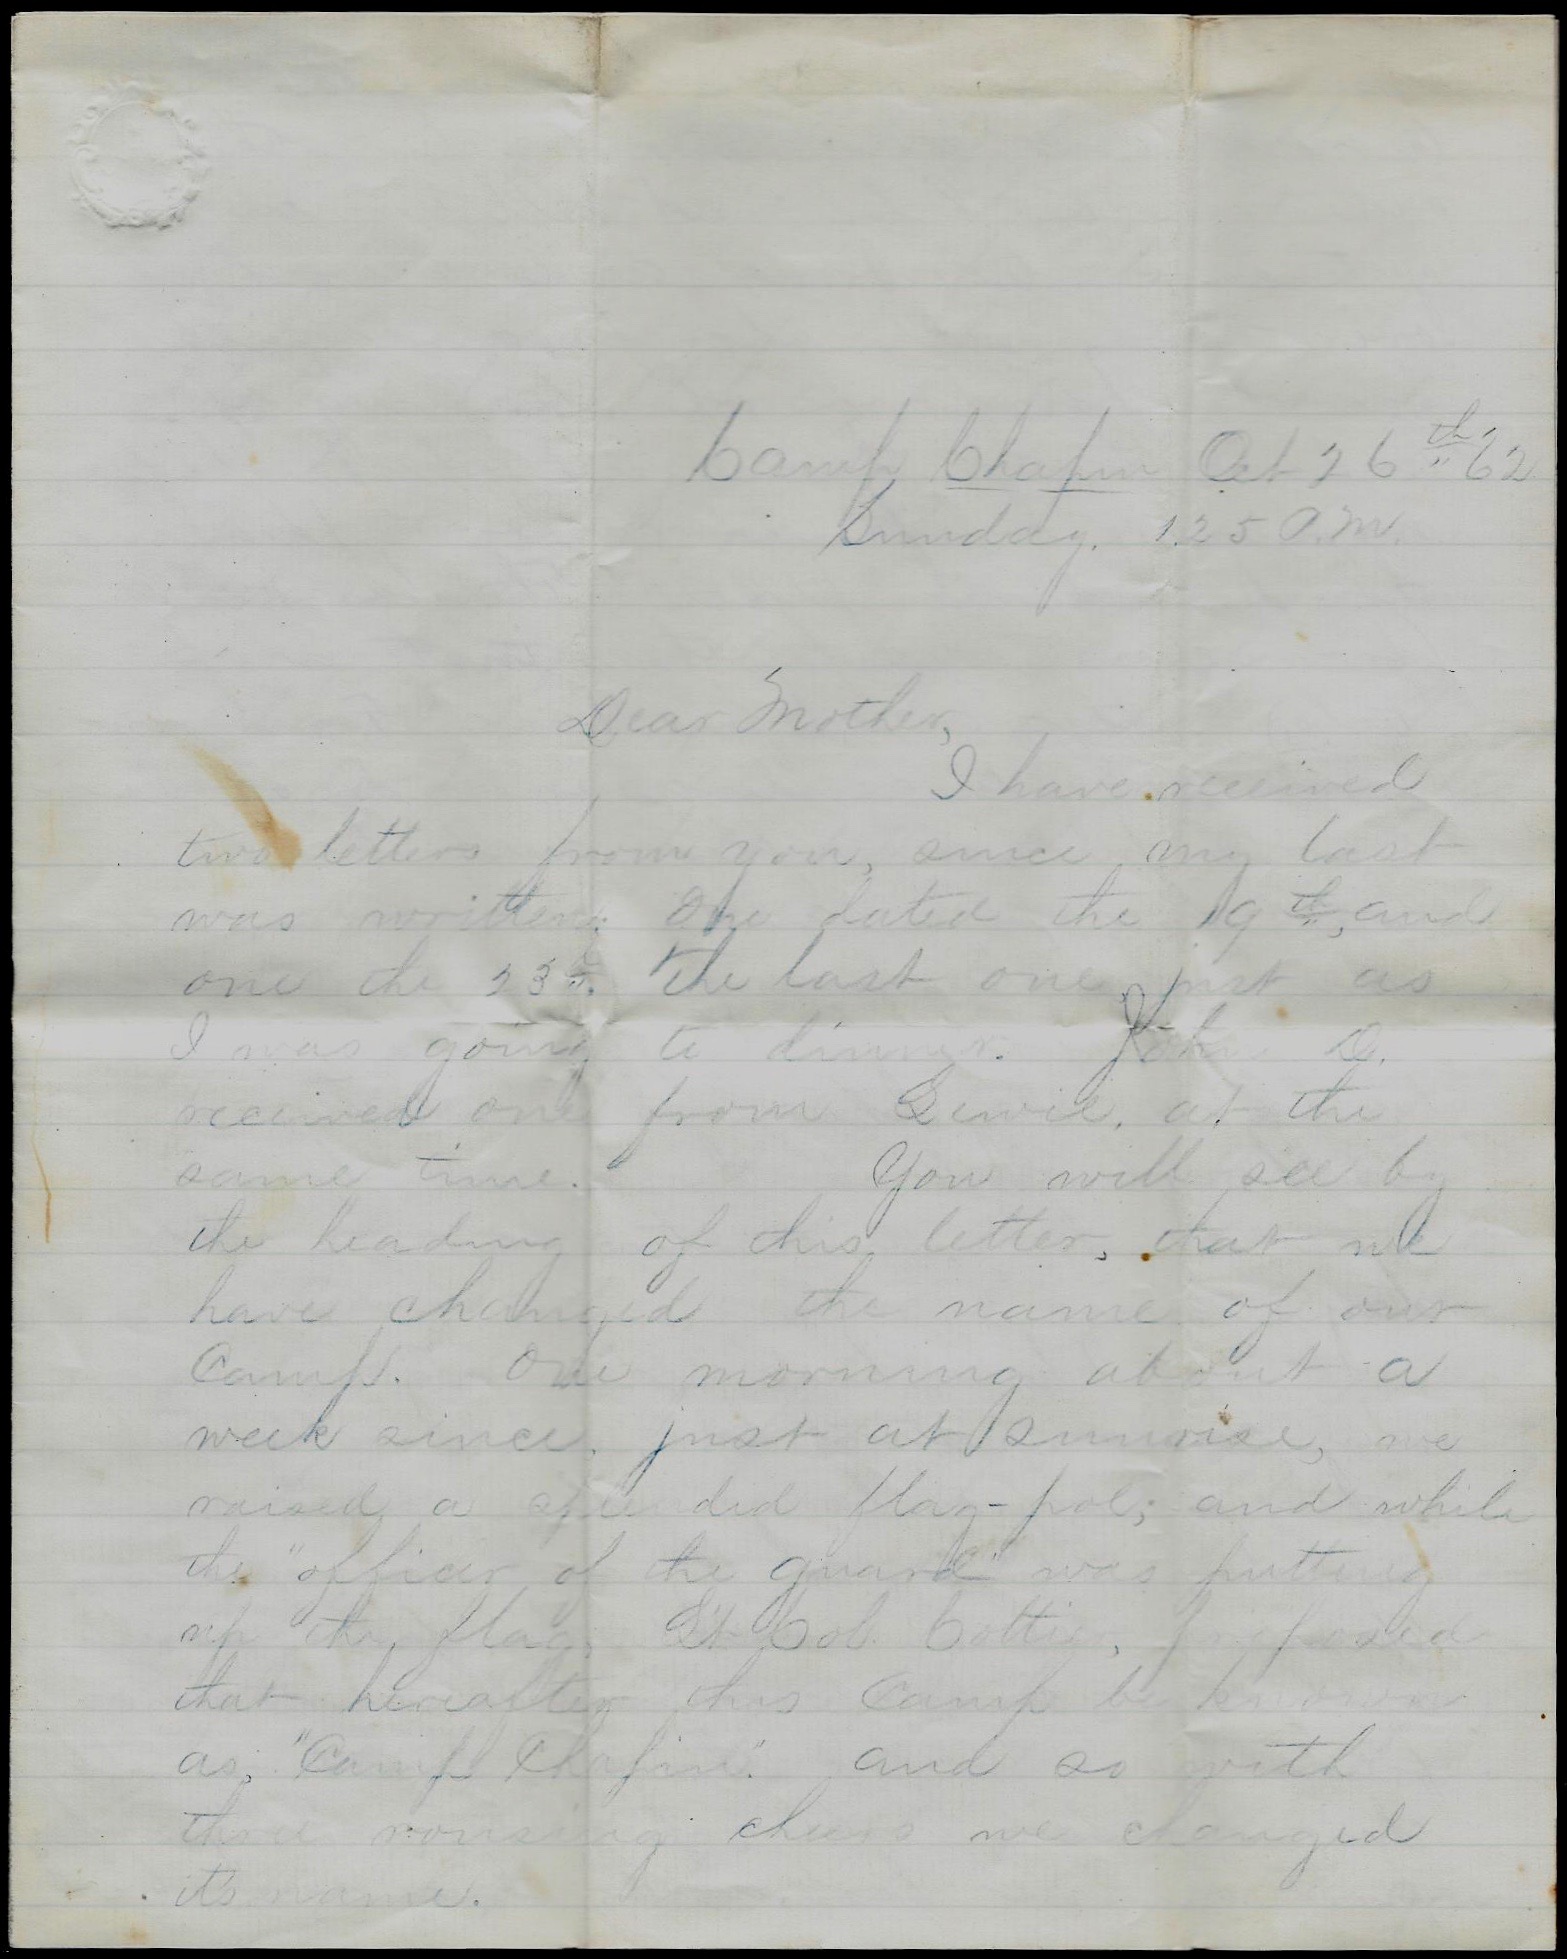 Camp Chapin Oct 26th '62
Sunday. 1.25 P.M.
Dear Mother,
I have received
two letters from you, since my last
was written; One dated the 19th, and
one the 23d. The last one just as
I was going to dinner. John D.
received one from Lewie, at the
same time. You will see by
the heading of this letter, that we
have changed the name of our
Camp. One morning about a
week since, just at sunrise, we
raised a splendid flag-pol; and while
the "officer of the guard" was putting
up the flag, Lt Col. Cottier, proposed
that hereafter this Camp be known
as, "Camp Chapin". and so with
three rousing cheers we changed
it's name.